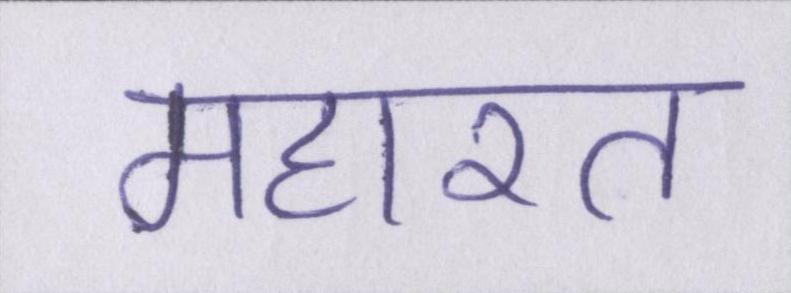 महारत